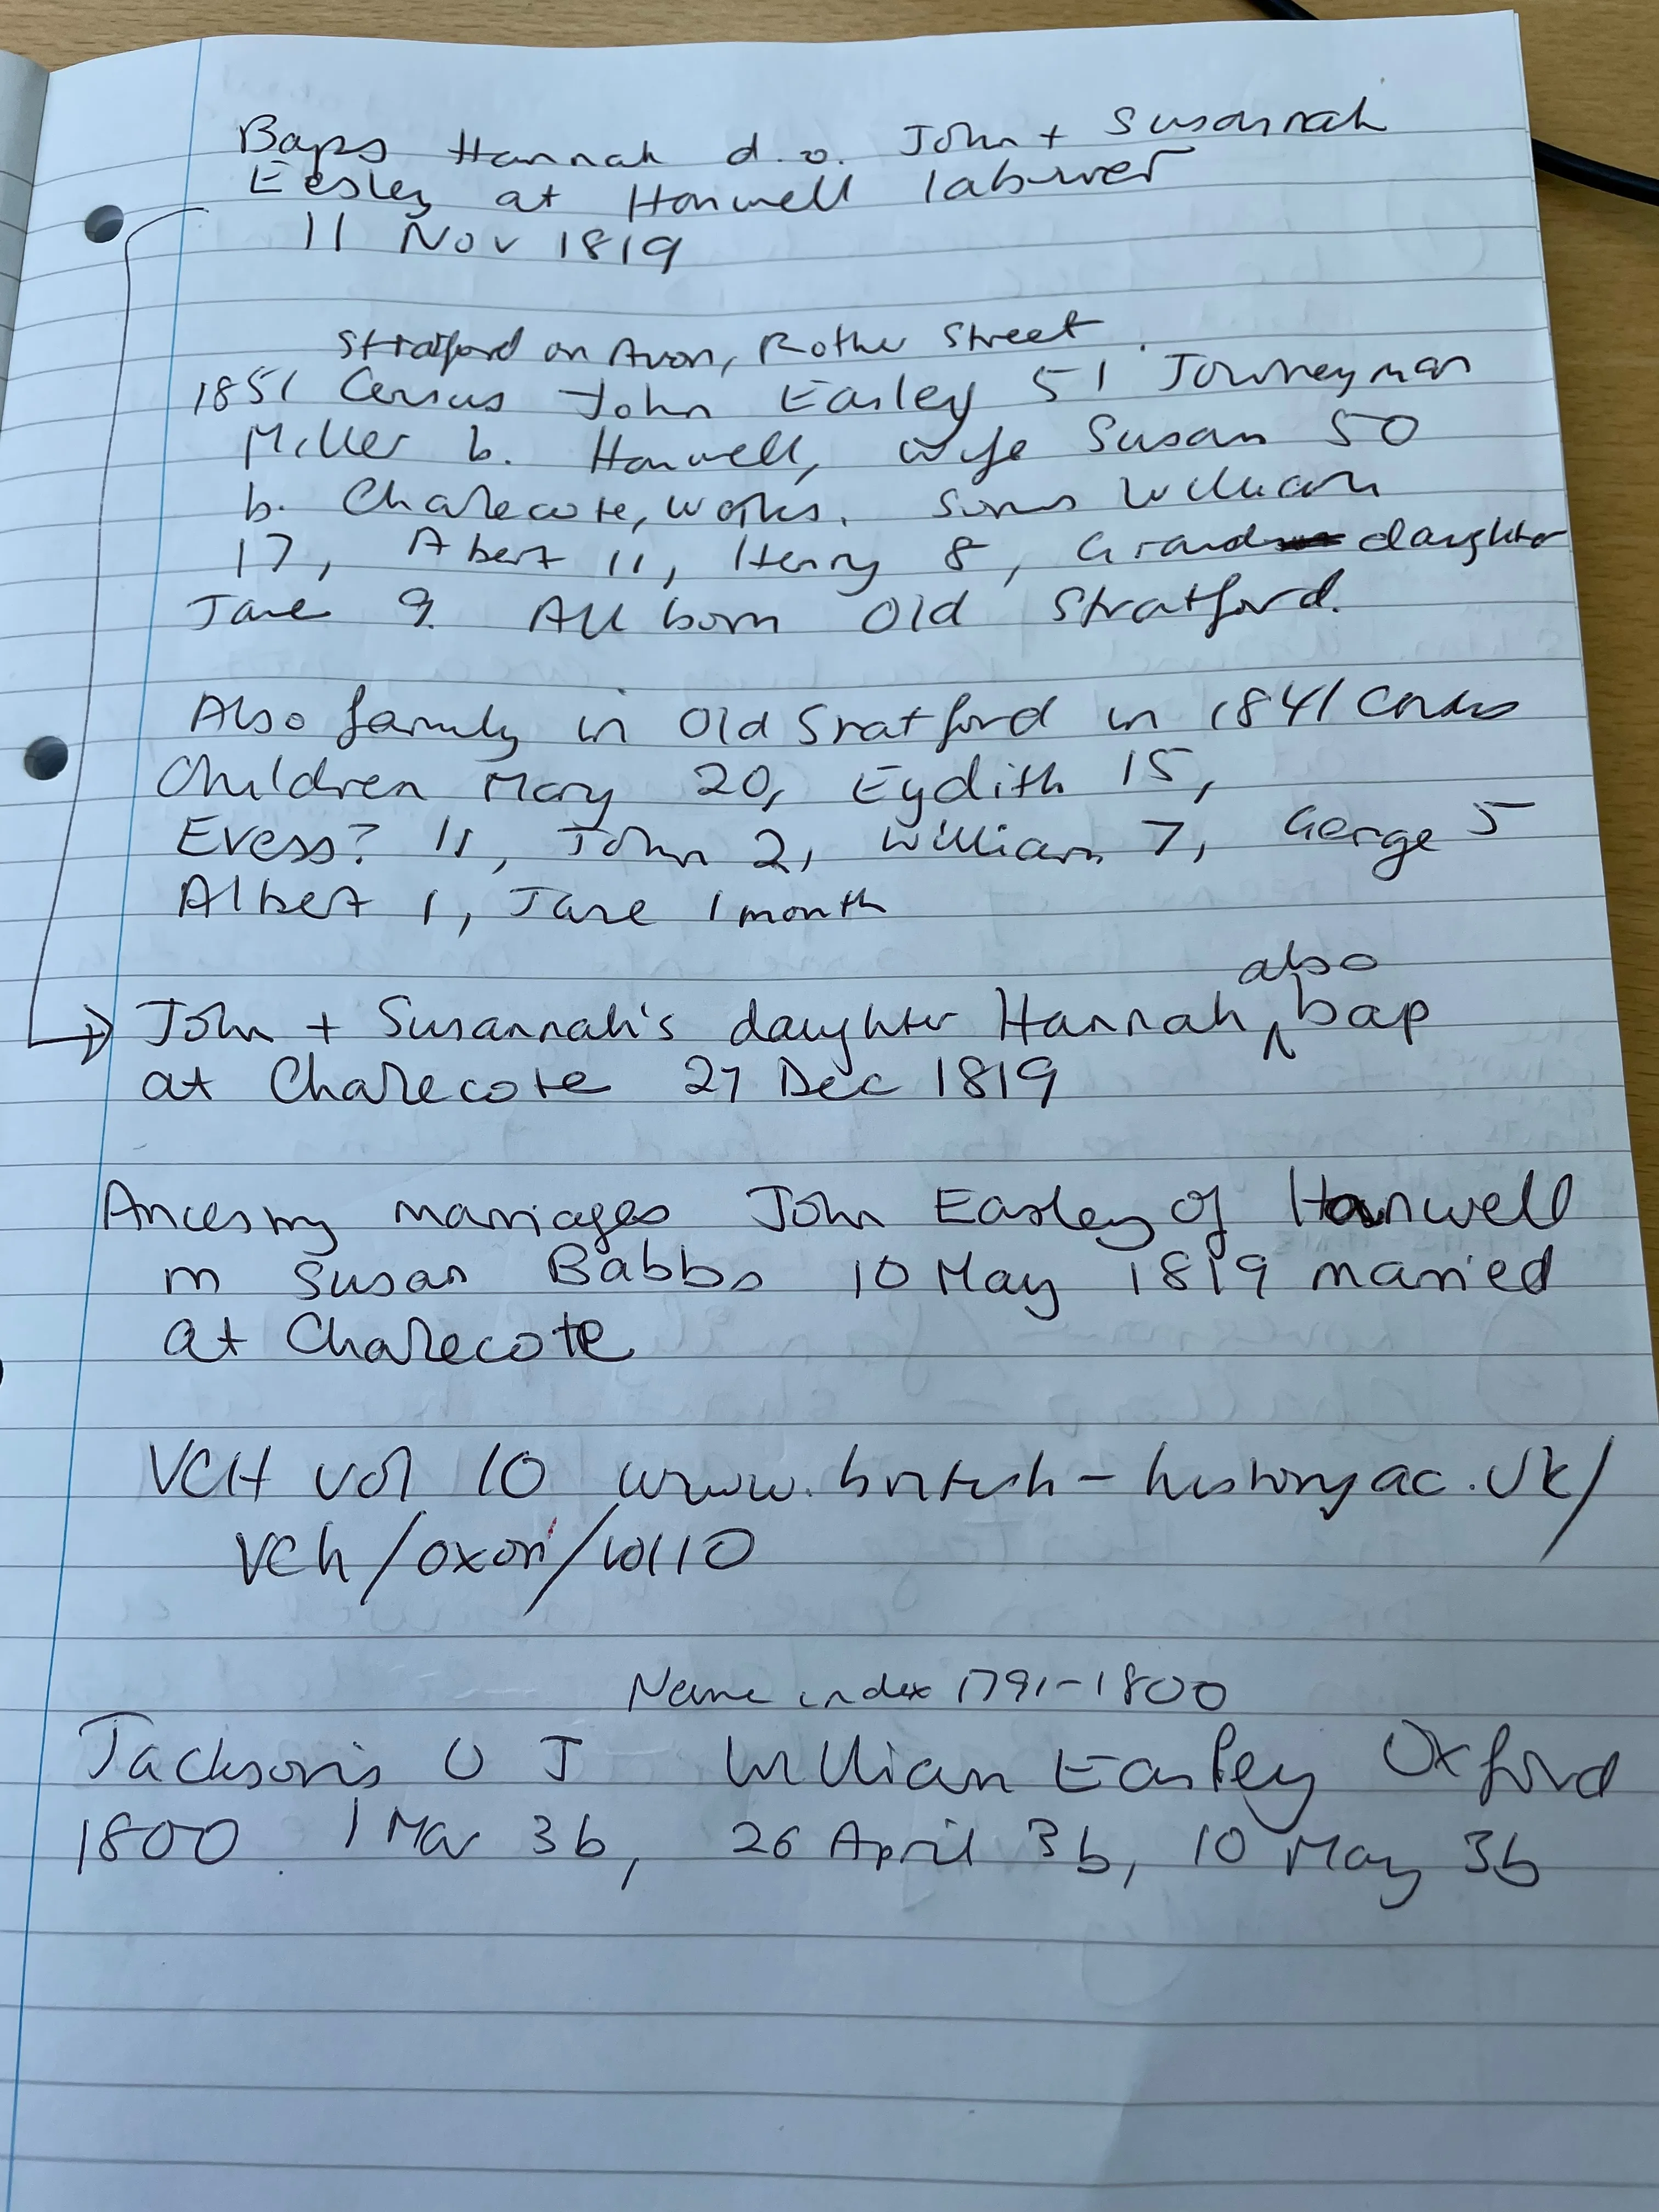 Baps Hannah d.o. John + Susannah
Eesley at Hanwell labourer
11 Nov 1819
Stratford on Avon, Rother Street
1851 Census John Easley 51 Journeyman
Miller b. Hanwell, wife Susan 50
b. Charlecote, Warks. Sons William
17, Abert 11, Henry 8, Grand daughter
Jane 9. All born Old Stratford.
Also family in Old Sratford in 1841 Census
Children Mary 20, Eydith 15,
Evess? 11, John 2, William 7, George 5
Albert 1, Jane 1 month
also
John + Susannah's daughter Hannah ^ bap
at Charlecote 27 Dec 1819
Ancestry marriages John Easley of Hanwell
m Susan Babbs 10 May 1819 married
at Charlecote
VCH vol 10 www.british-history.ac.uk/
vch/oxon/vol10
Name index 1791-1800
Jackson's O J William Easley Oxford
1800. 1 Mar 3b, 26 April 3b, 10 May 3b